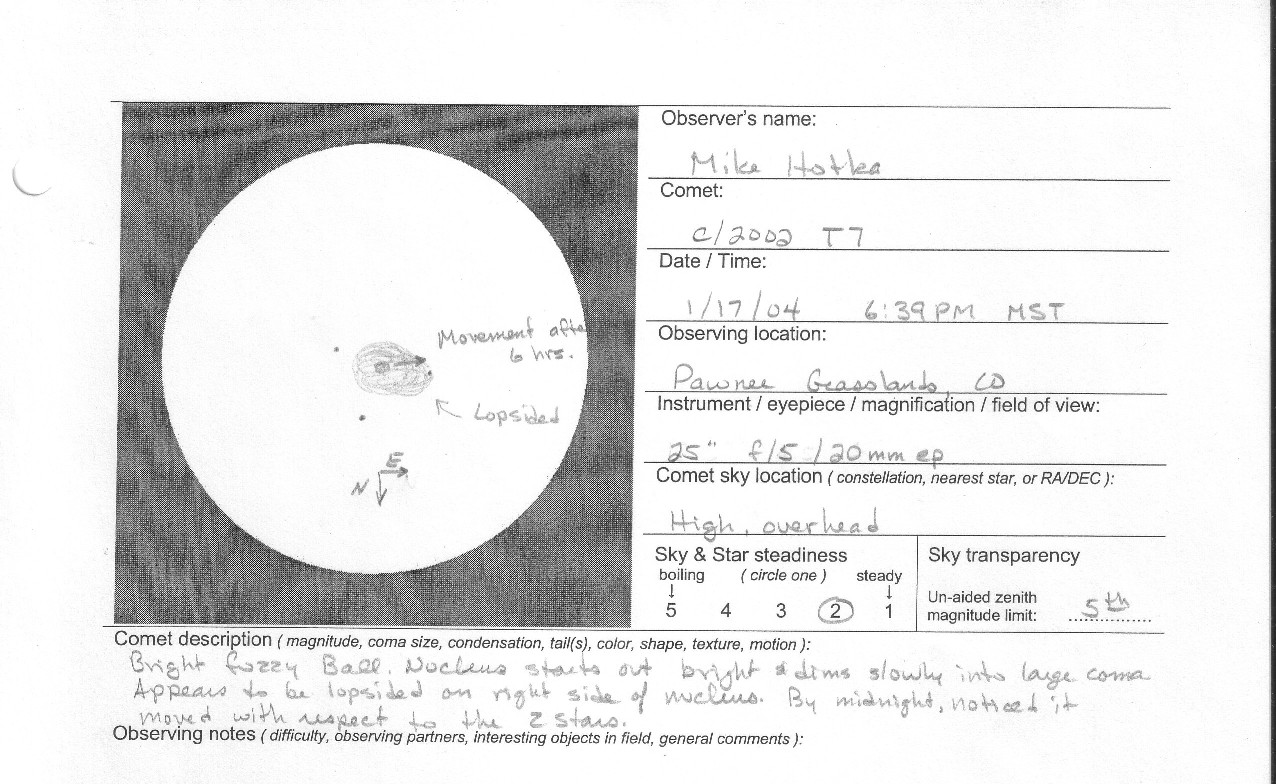 Observer's name:
Mike Hotka
Comet:
C/2002 T7
Date / Time:
1/17/04 6:39 PM MST
Observing location:
Pawnee Grasslands, CO
Instrument / eyepiece / magnification / field of view:
25" f/5 / 20mm ep
Comet sky location ( constellation, nearest star, or RA/DEC ):
High, overhead
Sky & Star steadiness
boiling ( circle one ) steady
↓ ↓
5 4 3 2 1
Sky transparency
Un-aided zenith
magnitude limit: 5th
Movement afte
6 hrs.
Lopsided
E
N
Comet description ( magnitude, coma size, condensation, tail(s), color, shape, texture, motion ):
Bright fuzzy Ball. Nucleus starts out bright & dims slowly into large coma
Appears to be lopsided on right side of nucleus. By midnight, noticed it
moved with respect to the 2 stars.
Observing notes ( difficulty, observing partners, interesting objects in field, general comments ):